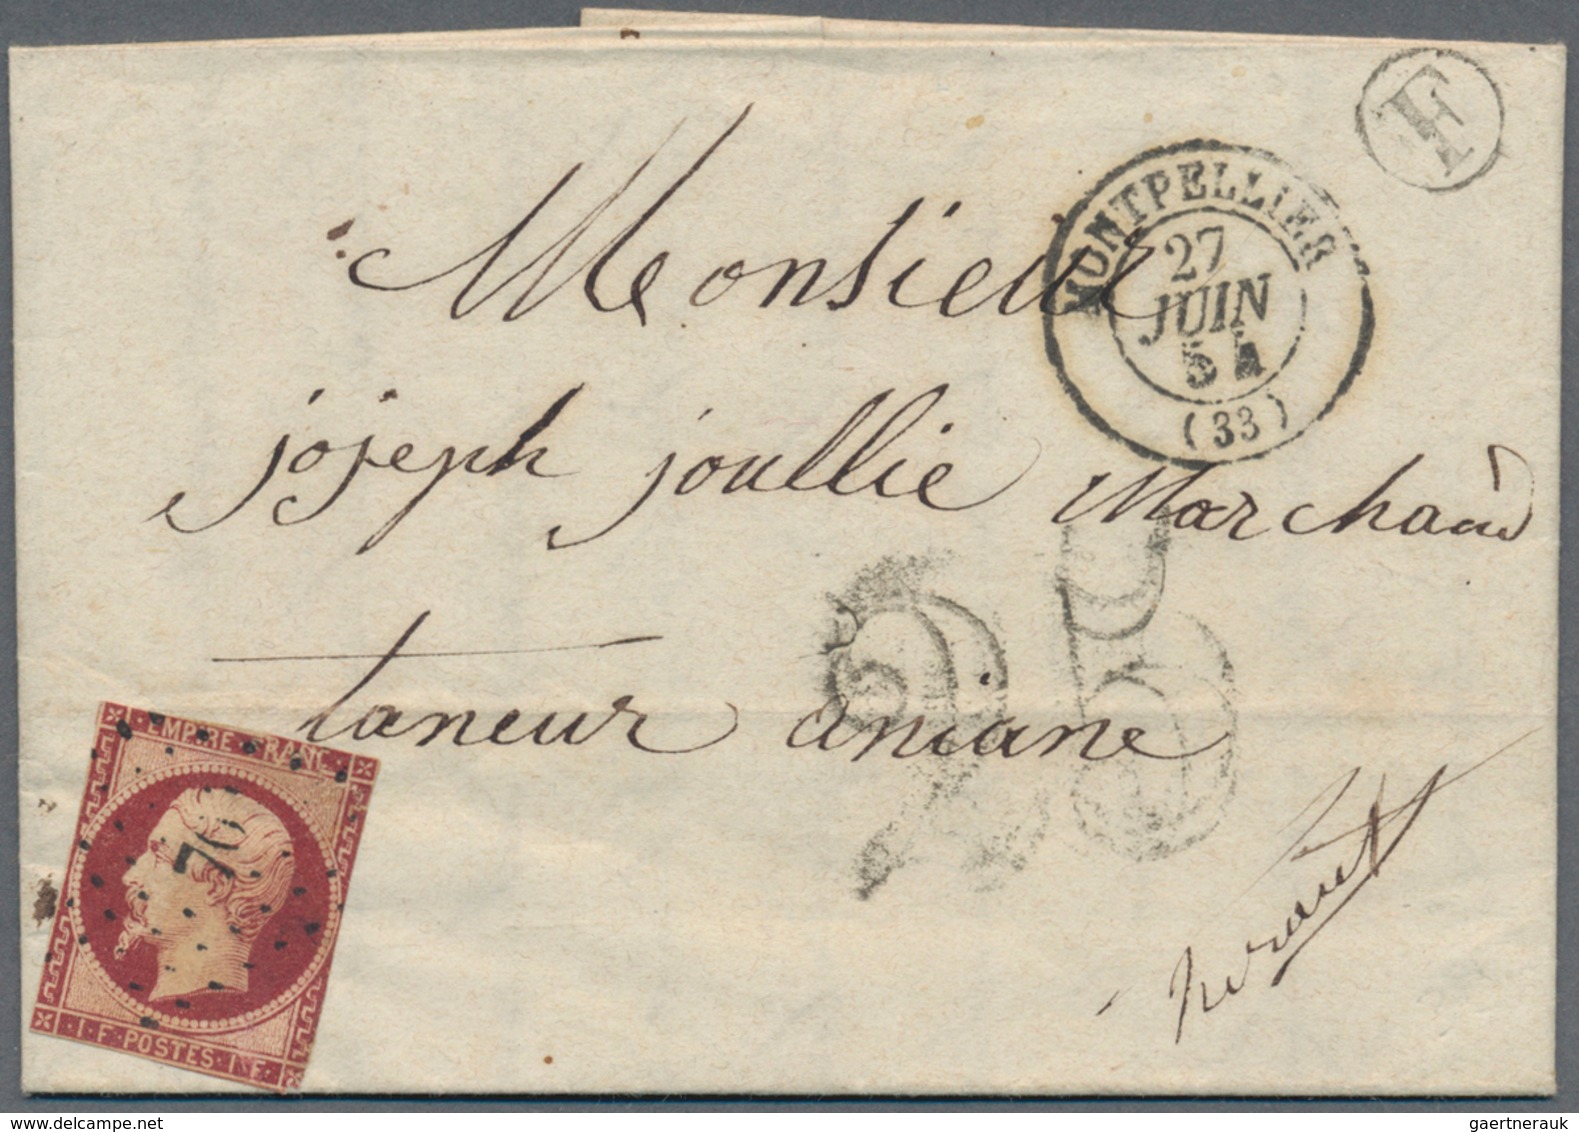 F
MONTPELLIER
27
JUIN
54
(33)
Monsieur
jojeph joullie Marchand
taneur aniane
25
EMPIRE FRANC
76
1 F POSTES 1 F
gaertnerauk@delcampe.net